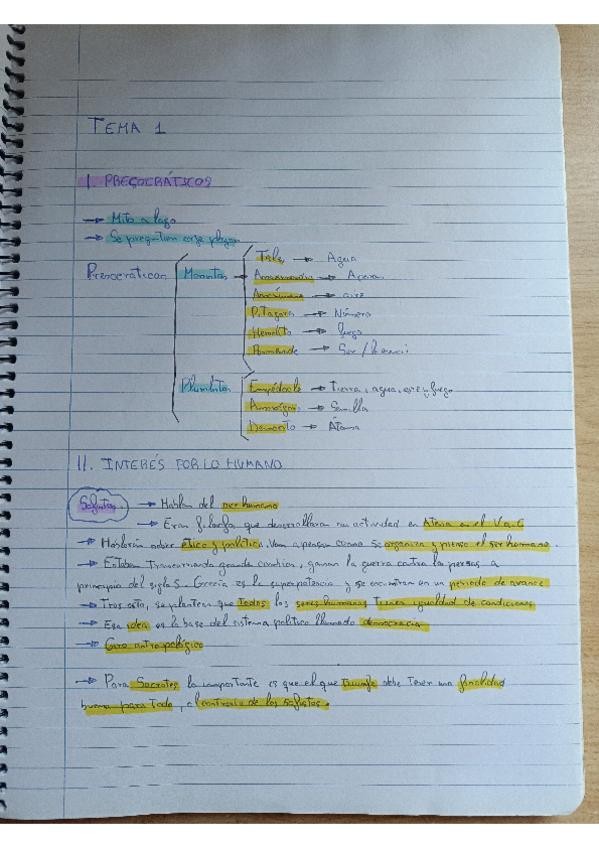 TEMA 1
I. PRESOCRÁTICOS
→ Mito a logo
→ Se preguntan
Presocráticos Monistas → Tales → Agua
Anaximandro →
Anaxímenes → aire
Pitágoras → Número
Heráclito → fuego
Parménide → Ser /
Pluralistas Empédocle → Tierra, agua, aire y fuego
Anaxágoras → Semilla
Demócrito → Átomo
II. INTERÉS POR LO HUMANO
Sofistas → Hablan del ser humano
→ Eran filósofos que desarrollaron su actividad en Atenas en el V a.C
→ Hablarán sober ética y política. Van a pensar como se organiza y piensa el ser humano.
→ Estaban transcurriendo grande cambios, ganan la guerra contra los persas a
principio del siglo 5 - Grecia es la superpotencia y se encuentran en un periodo de avance
→ Tras esto, se plantean que todos los seres humanos tienen igualdad de condiciones
→ Esa idea es la base del sistema político llamado democracia
→ Giro antropológico
→ Para Socrates lo importante es que el que triunfe debe tener una finalidad
buena para todo, al contrario de los sofistas.